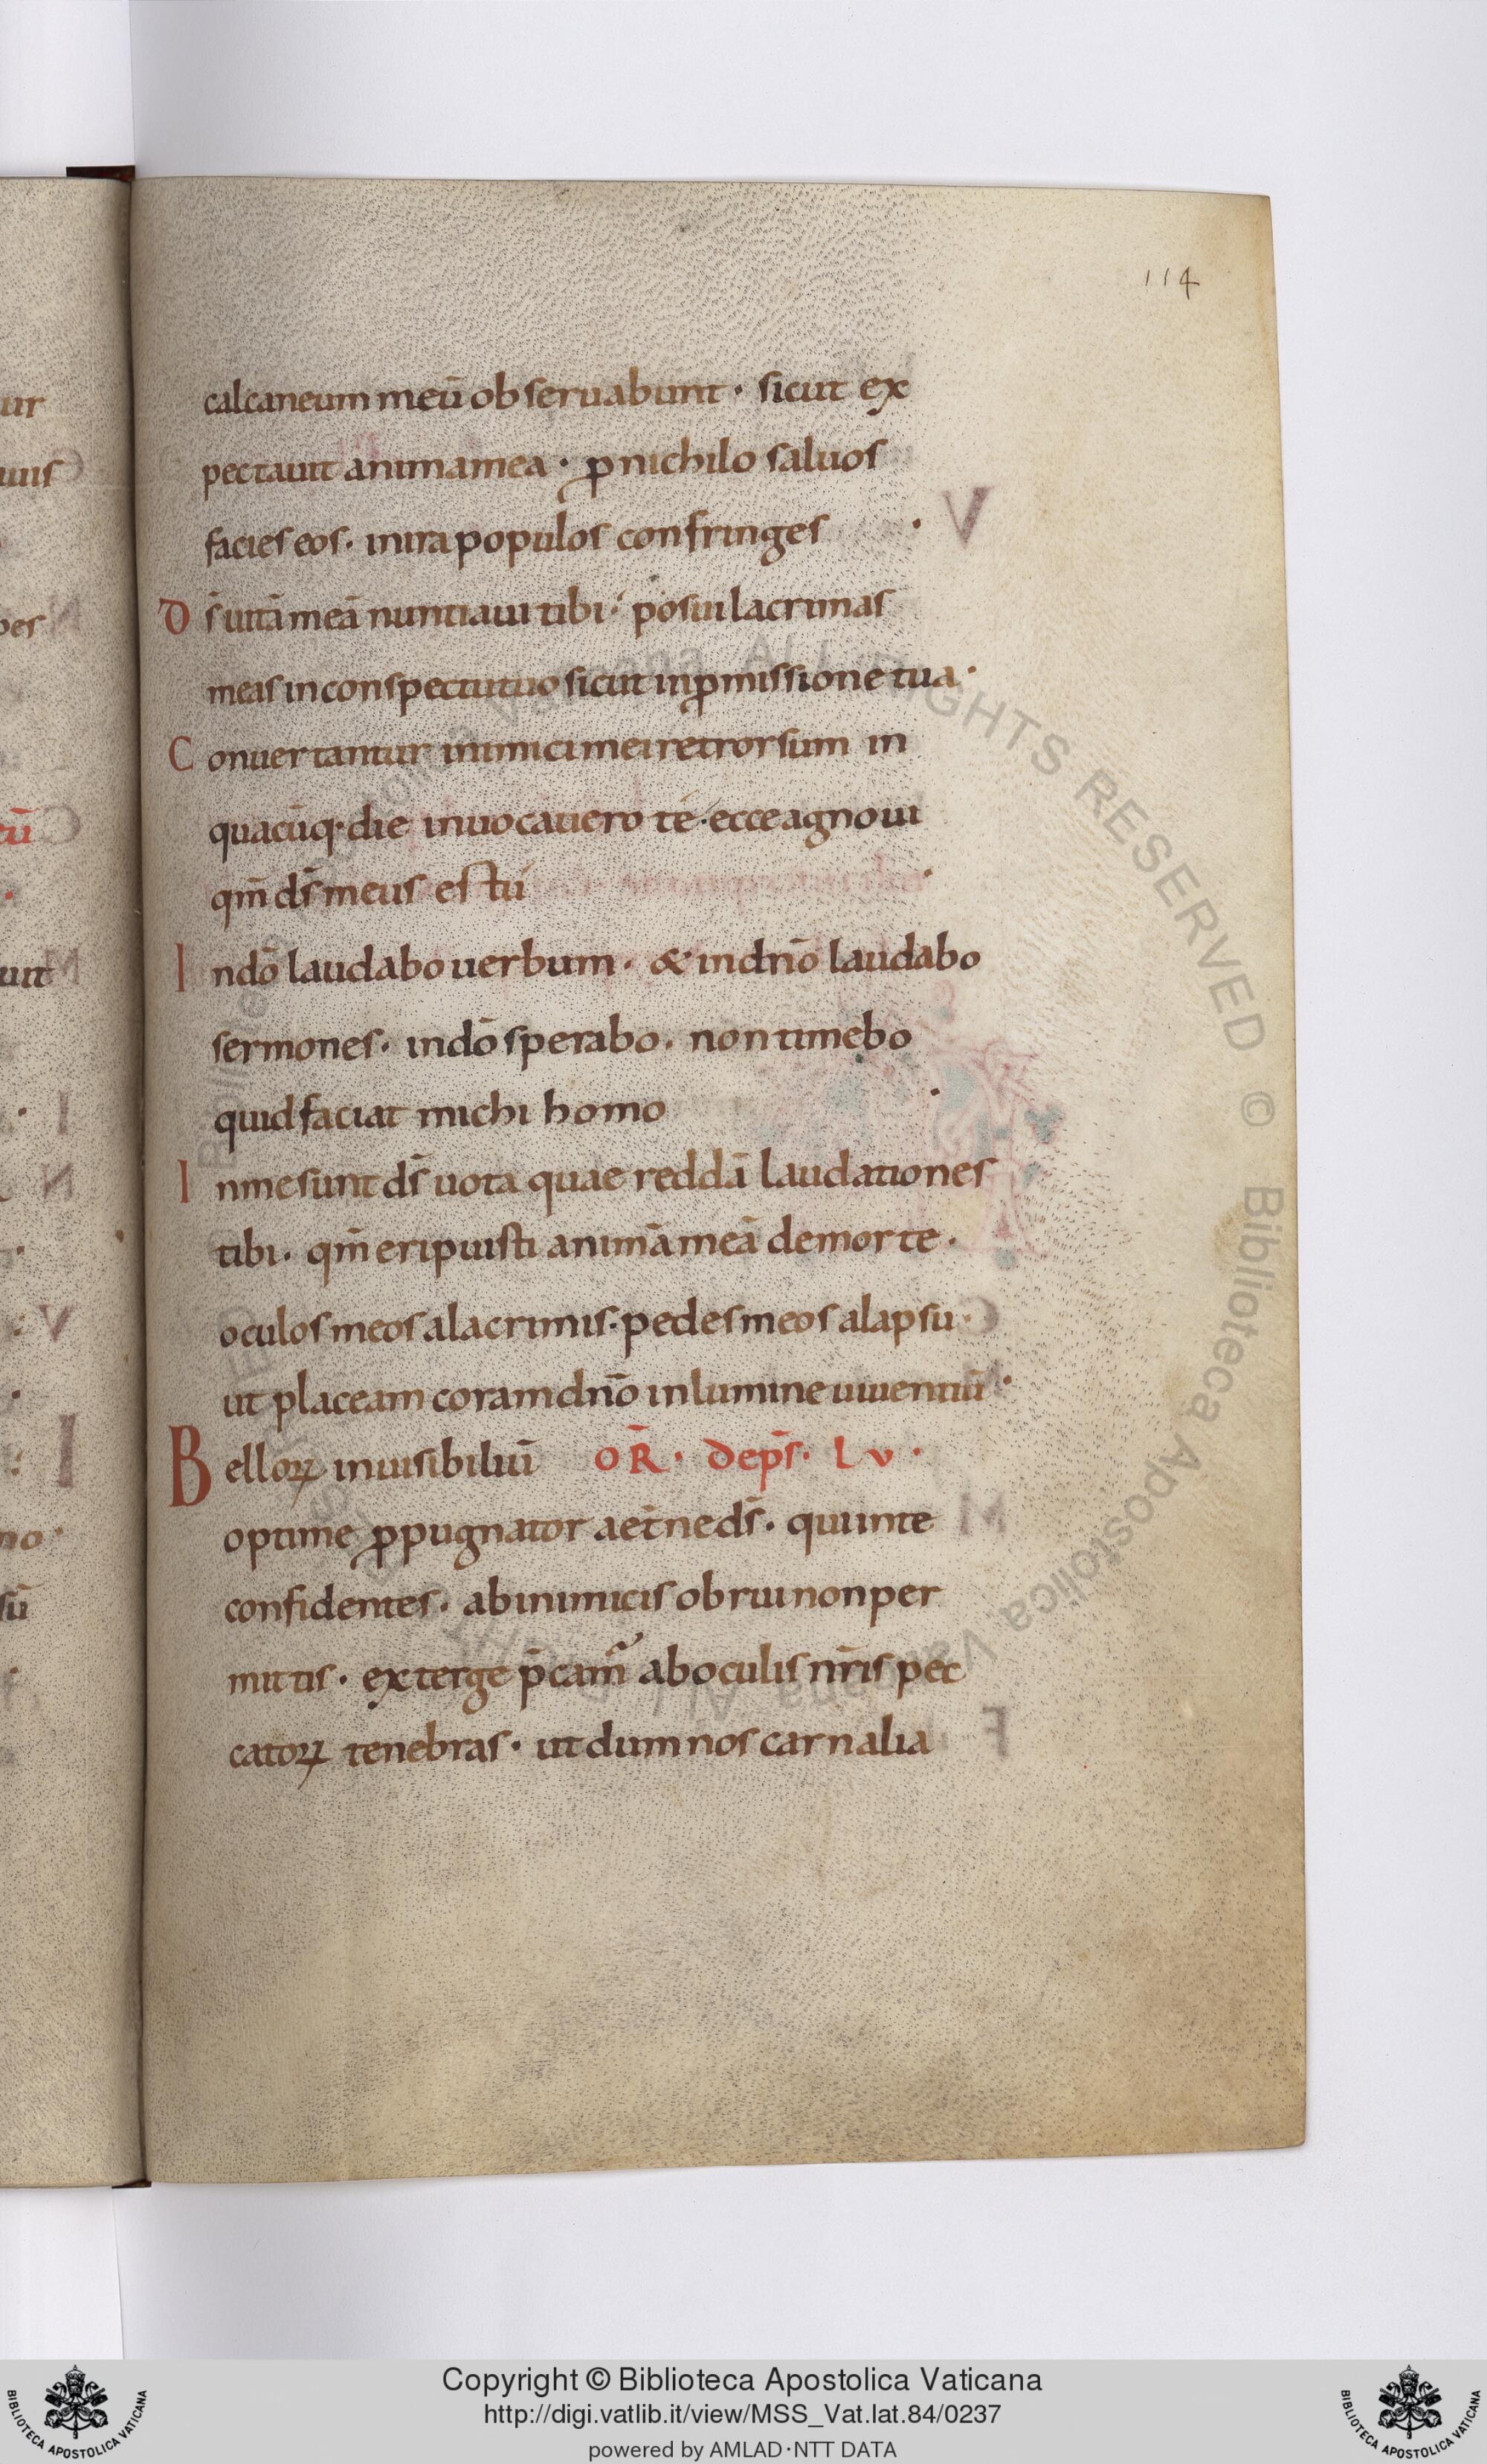 114
calcaneum meū obseruabunt · sicut ex
pectauit anima mea · ꝓ nichilo saluos
facies eos · in ira populos confringes
Ds̄ uitā meā nuntiaui tibi · posui lacrimas
meas in conspectu tuo sicut in ꝓmissione tua ·
Conuertantur inimici mei retrorsum in
quacūq· die inuocauero te · ecce agnoui
qm̄ ds̄ meus es tu
In dō laudabo uerbum · & in dn̄o laudabo
sermones · in dō sperabo · non timebo
quid faciat michi homo
In me sunt ds̄ uota quae reddā laudationes
tibi · qm̄ eripuisti animā meā de morte ·
oculos meos a lacrimis · pedes meos a lapsu ·
ut placeam coram dn̄o in lumine uiuentiū ·
Belloꝝ inuisibiliū OR̄ · de ps̄ · Lv ·
optime ꝓpugnator aet̄ne ds̄ · qui in te
confidentes · ab inimicis obrui non per
mittis · exterge p̄cam̄ ab oculis nr̄is pec
catoꝝ tenebras · ut dum nos carnalia
Copyright © Biblioteca Apostolica Vaticana
http://digi.vatlib.it/view/MSS_Vat.lat.84/0237
powered by AMLAD·NTT DATA
BIBLIOTECA APOSTOLICA VATICANA
BIBLIOTECA APOSTOLICA VATICANA